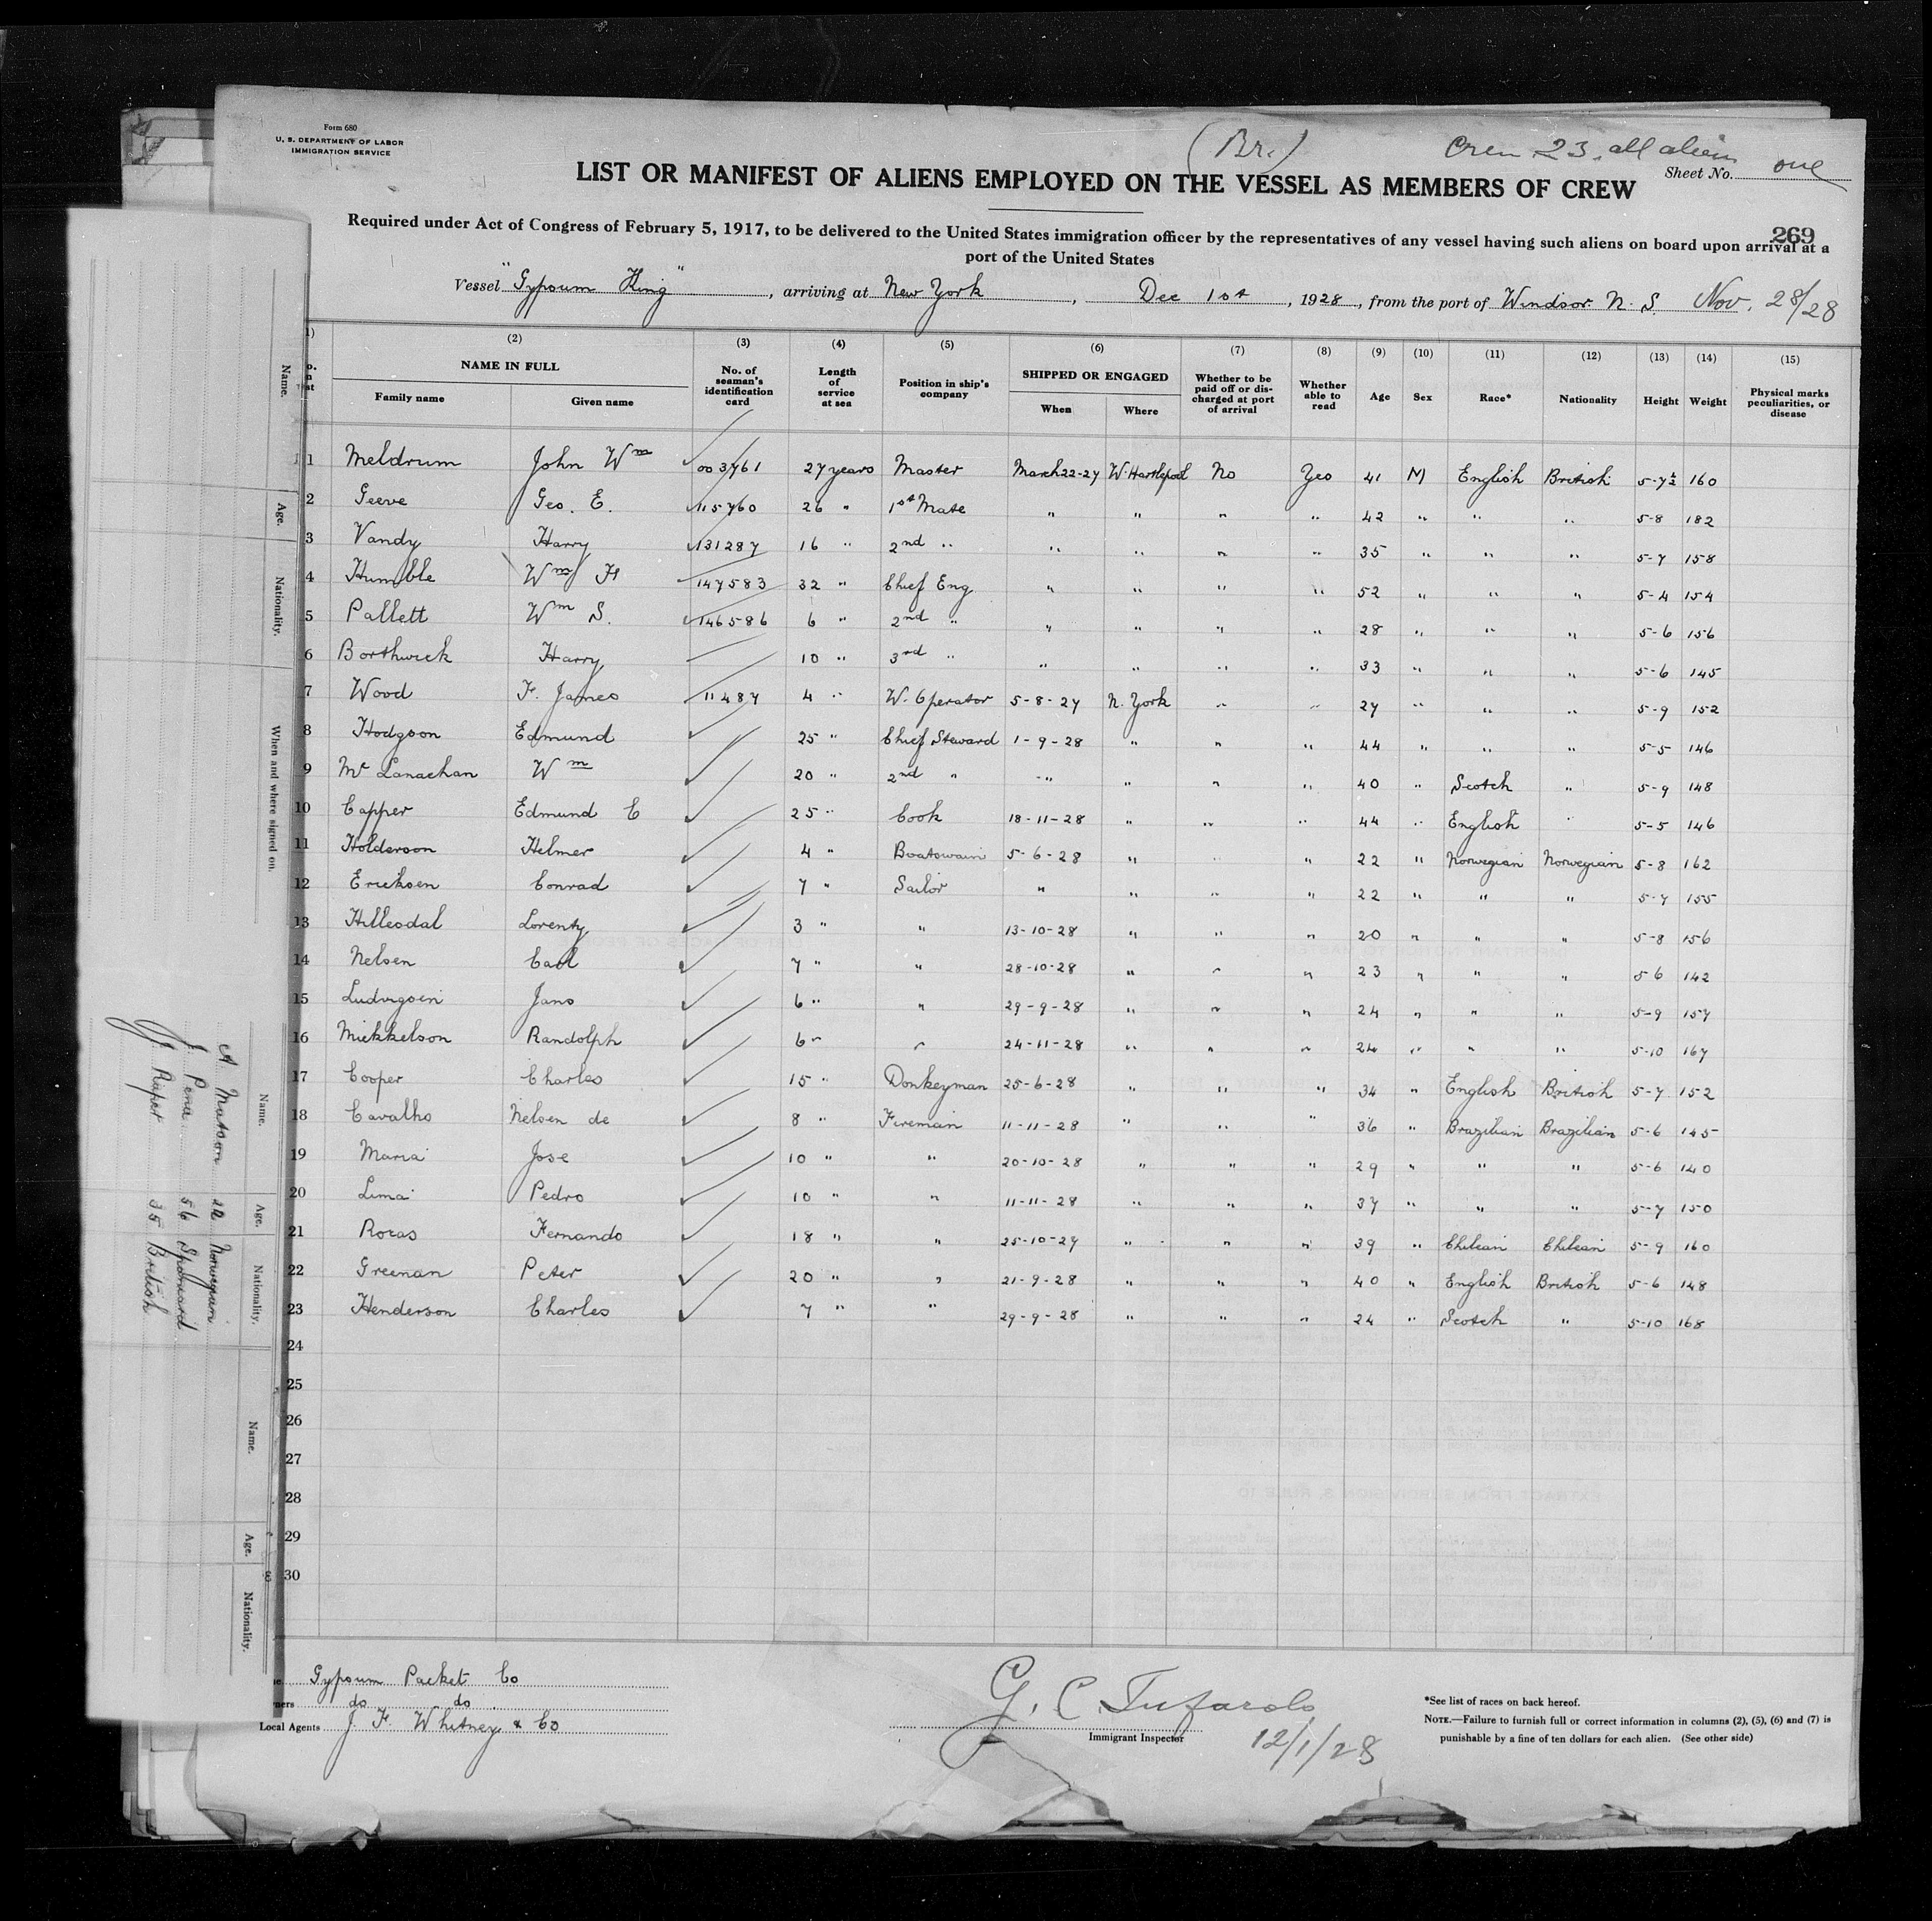 Form 680
U. S. DEPARTMENT OF LABOR
IMMIGRATION SERVICE
(Br.)
Crew 23, all aliens
Sheet No. one
LIST OR MANIFEST OF ALIENS EMPLOYED ON THE VESSEL AS MEMBERS OF CREW
269
Required under Act of Congress of February 5, 1917, to be delivered to the United States immigration officer by the representatives of any vessel having such aliens on board upon arrival at a
port of the United States
Vessel "Gypsum King", arriving at New York, Dec 1st, 1928, from the port of Windsor. N. S. Nov. 28/28
(2) (3) (4) (5) (6) (7) (8) (9) (10) (11) (12) (13) (14) (15)
NAME IN FULL
Family name
Given name
No. of seaman's identification card
Length of service at sea
Position in ship's company
SHIPPED OR ENGAGED
When
Where
Whether to be paid off or discharged at port of arrival
Whether able to read
Age
Sex
Race*
Nationality
Height
Weight
Physical marks peculiarities, or disease
1 Meldrum John Wm 003761 27 years Master March 22-27 W. Hartlepool No Yes 41 M English British 5-7½ 160
2 Geeve Geo. E. 115760 26 " 1st Mate " " " " 42 " " " 5-8 182
3 Vandy Harry 131287 16 " 2nd " " " " " 35 " " " 5-7 158
4 Humble Wm H 147583 32 " Chief Eng " " " " 52 " " " 5-4 154
5 Pallett Wm S. 146586 6 " 2nd " " " " " 28 " " " 5-6 156
6 Borthwick Harry 10 " 3rd " " " " " 33 " " " 5-6 145
7 Wood F. James 11487 4 " W. Operator 5-8-27 N. York " " 27 " " " 5-9 152
8 Hodgson Edmund 25 " Chief Steward 1-9-28 " " " 44 " " " 5-5 146
9 Mc Lanachan Wm 20 " 2nd " " " " " 40 " Scotch " 5-9 148
10 Capper Edmund C 25 " Cook 18-11-28 " " " 44 " English " 5-5 146
11 Holderson Helmer 4 " Boatswain 5-6-28 " " " 22 " Norwegian Norwegian 5-8 162
12 Ericksen Conrad 7 " Sailor " " " " 22 " " " 5-7 155
13 Hillesdal Lorentz 3 " " 13-10-28 " " " 20 " " " 5-8 156
14 Nelsen Carl 7 " " 28-10-28 " " " 23 " " " 5 6 142
15 Ludvigsen Jans 6 " " 29-9-28 " " " 24 " " " 5-9 157
16 Mickkelson Randolph 6 " " 24-11-28 " " " 24 " " " 5-10 167
17 Cooper Charles 15 " Donkeyman 25-6-28 " " " 34 " English British 5-7 152
18 Cavalho Nelsen de 8 " Fireman 11-11-28 " " " 36 " Brazilian Brazilian 5-6 145
19 Maria Jose 10 " " 20-10-28 " " " 29 " " " 5-6 140
20 Lima Pedro 10 " " 11-11-28 " " " 37 " " " 5-7 150
21 Rocas Fernando 18 " " 25-10-27 " " " 39 " Chilean Chilean 5-9 160
22 Greenan Peter 20 " " 21-9-28 " " " 40 " English British 5-6 148
23 Henderson Charles 7 " " 29-9-28 " " " 24 " Scotch " 5-10 168
24
25
26
27
28
29
30
Gypsum Packet Co
do do
Local Agents J. F. Whitney & Co
G. C. Tufarolo
Immigrant Inspector
12/1/28
*See list of races on back hereof.
NOTE.—Failure to furnish full or correct information in columns (2), (5), (6) and (7) is
punishable by a fine of ten dollars for each alien. (See other side)
Name.
Age.
Nationality.
When and where signed on.
Name.
Age.
Nationality.
A. Matson 22 Norwegian
J. Pena 56 Spaniard
J. Raper 35 British
Name.
Age.
Nationality.